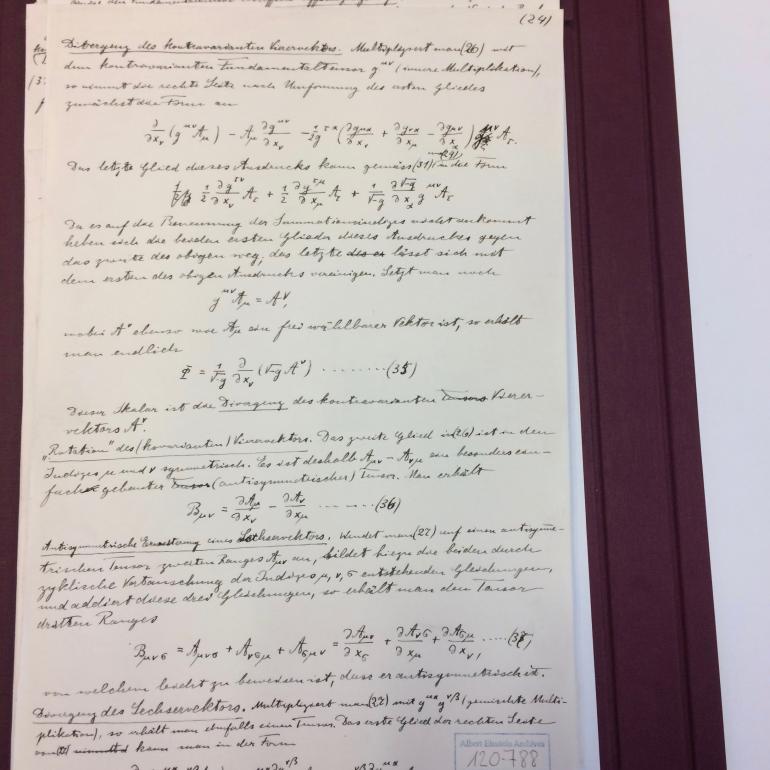 (24)
Divergenz des kontravarianten Vierervektors. Multipliziert man (26) mit
dem kontravarianten Fundamentaltensor g^{μν} (innere Multiplikation),
so nimmt die rechte Seite nach Umformung des ersten Gliedes
zunächst die Form an
∂/∂x_ν (g^{μν} A_μ) − A_μ ∂g^{μν}/∂x_ν − ½ g^{τα} (∂g_{μα}/∂x_ν + ∂g_{να}/∂x_μ − ∂g_{μν}/∂x_α) g^{μν} A_τ.
Das letzte Glied dieses Ausdrucks kann gemäss (31) und (29) in die Form
½ ∂g^{τν}/∂x_ν A_τ + ½ ∂g^{τμ}/∂x_μ A_τ + 1/√-g ∂√-g/∂x_α g^{μν} A_τ
Da es auf die Benennung der Summationsindizes nicht ankommt
heben sich die beiden ersten Glieder dieses Ausdruckes gegen
das zweite des obigen weg; das letzte lässt sich mit
dem ersten des obigen Ausdrucks vereinigen. Setzt man noch
g^{μν} A_μ = A^ν,
wobei A^ν ebenso wie A_μ ein frei wählbarer Vektor ist, so erhält
man endlich
Φ = 1/√-g ∂/∂x_ν (√-g A^ν) ........ (35)
Dieser Skalar ist die Divergenz des kontravarianten Vierer-
vektors A^ν.
„Rotation" des (kovarianten) Vierervektors. Das zweite Glied in (26) ist in den
Indizes μ und ν symmetrisch. Es ist deshalb A_{μν} − A_{νμ} ein besonders ein-
fach gebauter (antisymmetrischer) Tensor. Man erhält
B_{μν} = ∂A_μ/∂x_ν − ∂A_ν/∂x_μ ...... (36)
Antisymmetrische Erweiterung eines Sechservektors. Wendet man (27) auf einen antisymme-
trischen Tensor zweiten Ranges A_{μν} an, bildet hiezu die beiden durch
zyklische Vertauschung der Indizes μ, ν, σ entstehenden Gleichungen,
und addiert diese drei Gleichungen, so erhält man den Tensor
dritten Ranges
B_{μνσ} = A_{μνσ} + A_{νσμ} + A_{σμν} = ∂A_{μν}/∂x_σ + ∂A_{νσ}/∂x_μ + ∂A_{σμ}/∂x_ν, ..... (37),
von welchem leicht zu beweisen ist, dass er antisymmetrisch ist.
Divergenz des Sechservektors. Multipliziert man (27) mit g^{μα} g^{νβ} (gemischte Multi-
plikation), so erhält man ebenfalls einen Tensor. Das erste Glied der rechten Seite
kann man in der Form
Albert Einstein Archives
120-788